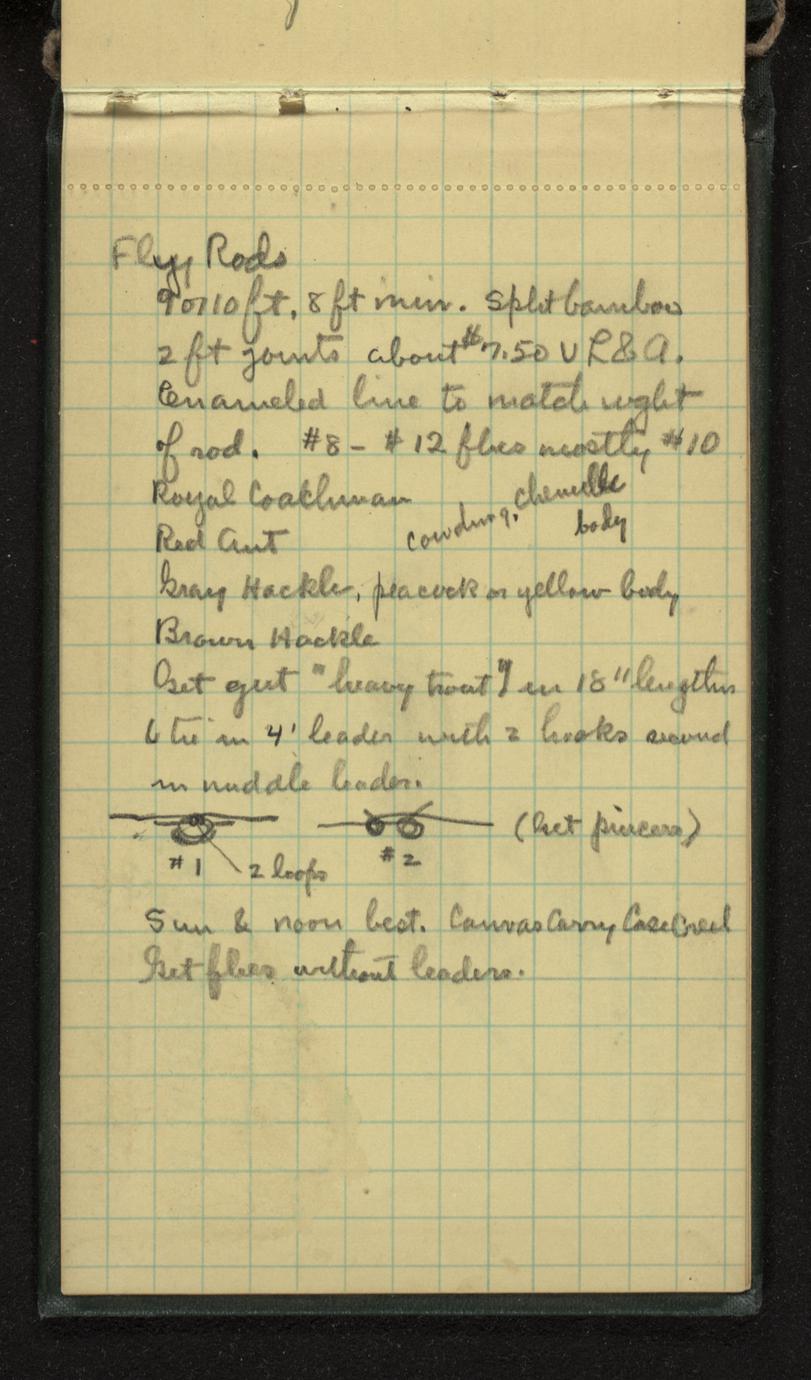 Fly Rods
9 or 10 ft, 8 ft min. Split bamboo
2 ft joints about $7.50 V L & A.
Enameled line to match wght
of rod. #8 - #12 flies mostly #10
Royal Coachman chenille
Red Ant body
Gray Hackle, peacock or yellow body
Brown Hackle
Get gut "heavy trout" in 18" lengths
& tie in 4' leader with 2 hooks second
in middle leader.
(Get pincers)
#1 2 loops #2
Sun & noon best. Canvas Carry Case Creel
Get flies without leaders.